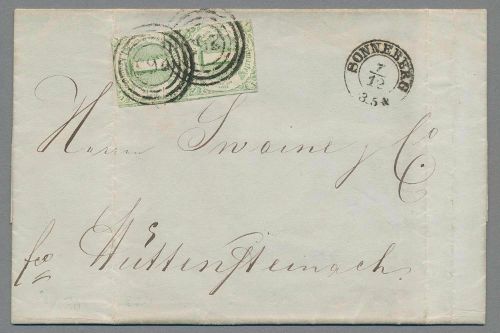 SONNEBERG
1/12
Herrn Swaine & Co
fco Hüttensteinach.